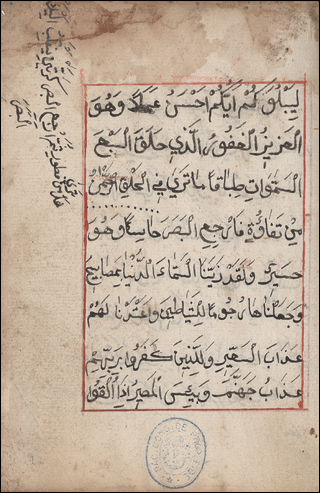 لِيَبْلُوَكُمْ اَيُّكُمْ اَحْسَنُ عَمَلًا وَهُوَ
الْعَزِيزُ الْغَفُورُ الَّذِي خَلَقَ السَّبْعَ
السَّمٰوَاتِ طِبَاقًا مَا تَرٰى فِي الْخَلْقِ الرَّحْمٰنِ
مِنْ تَفَاوُتٍ فَارْجِعِ الْبَصَرَ خَاسِئًا وَهُوَ
حَسِيرٌ وَلَقَدْ زَيَّنَّا السَّمَاءَ الدُّنْيَا بِمَصَابِيحَ
وَجَعَلْنَاهَا رُجُومًا لِلشَّيَاطِينِ وَاَعْتَدْنَا لَهُمْ
عَذَابَ السَّعِيرِ وَلِلَّذِينَ كَفَرُوا بِرَبِّهِمْ
عَذَابُ جَهَنَّمَ وَبِئْسَ الْمَصِيرُ اِذَا اُلْقُوا
هل ترى من فطور ثم ارجع البصر كرتين ينقلب اليك
البصر